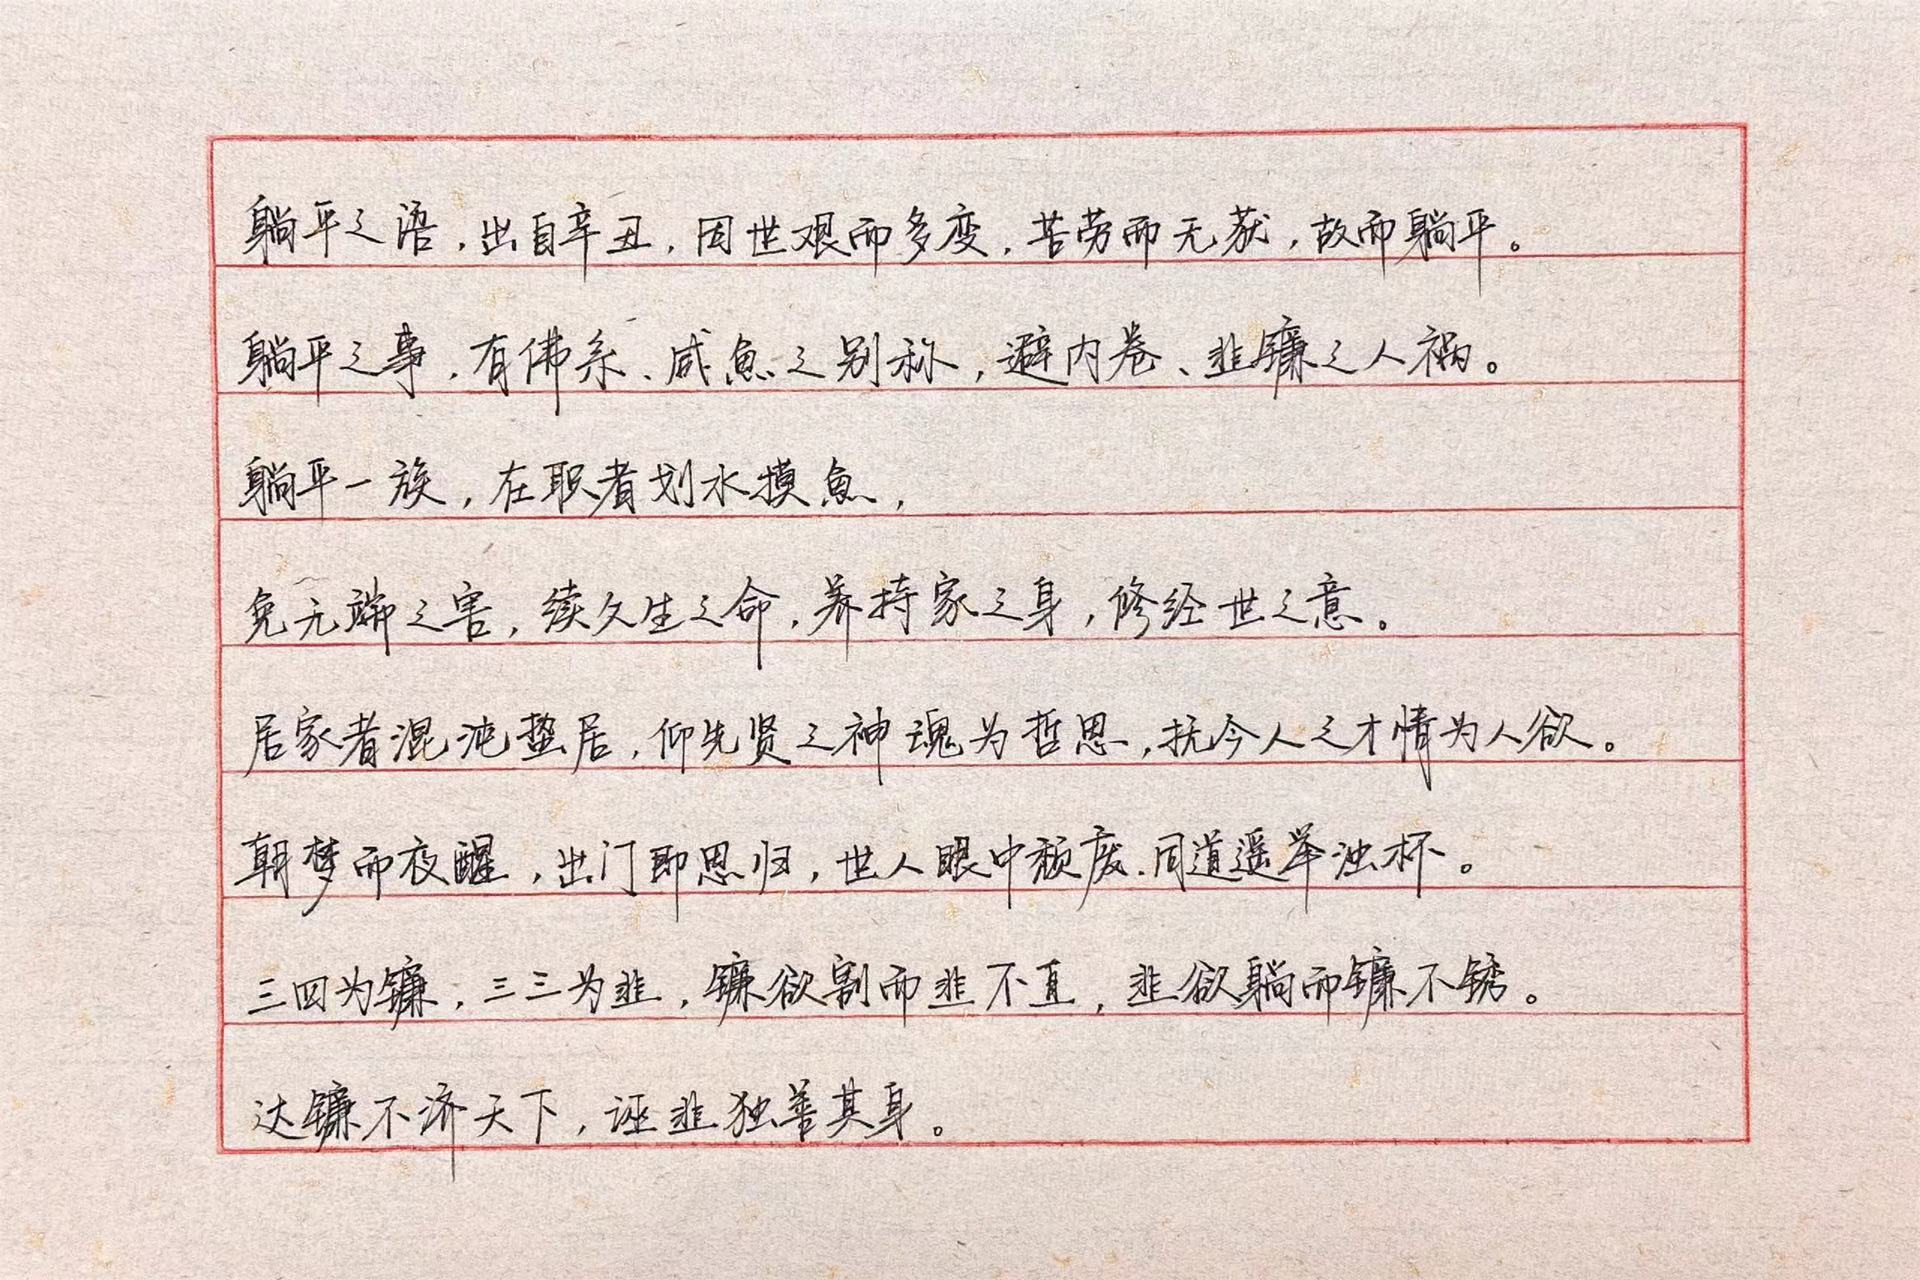 躺平之语，出自辛丑，因世艰而多变，苦劳而无获，故而躺平。
躺平之事，有佛系、咸魚之别称，避内卷、韭镰之人祸。
躺平一族，在职者划水摸魚，
免无端之害，续久生之命，养持家之身，修经世之意。
居家者混沌蛰居，仰先贤之神魂为哲思，抚今人之才情为人欲。
朝梦而夜醒，出门即思归，世人眼中颓废、同道遥举浊杯。
三四为镰，三三为韭，镰欲割而韭不直，韭欲躺而镰不锈。
达镰不济天下，诬韭独善其身。